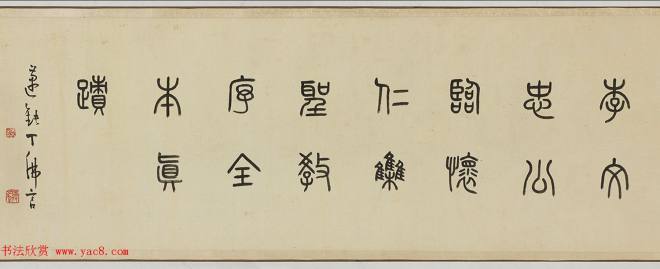 李文
忠公
臨懷
仁集
聖教
序全
本真
蹟
邁鈍丁佛言
书法欣赏 www.yac8.com